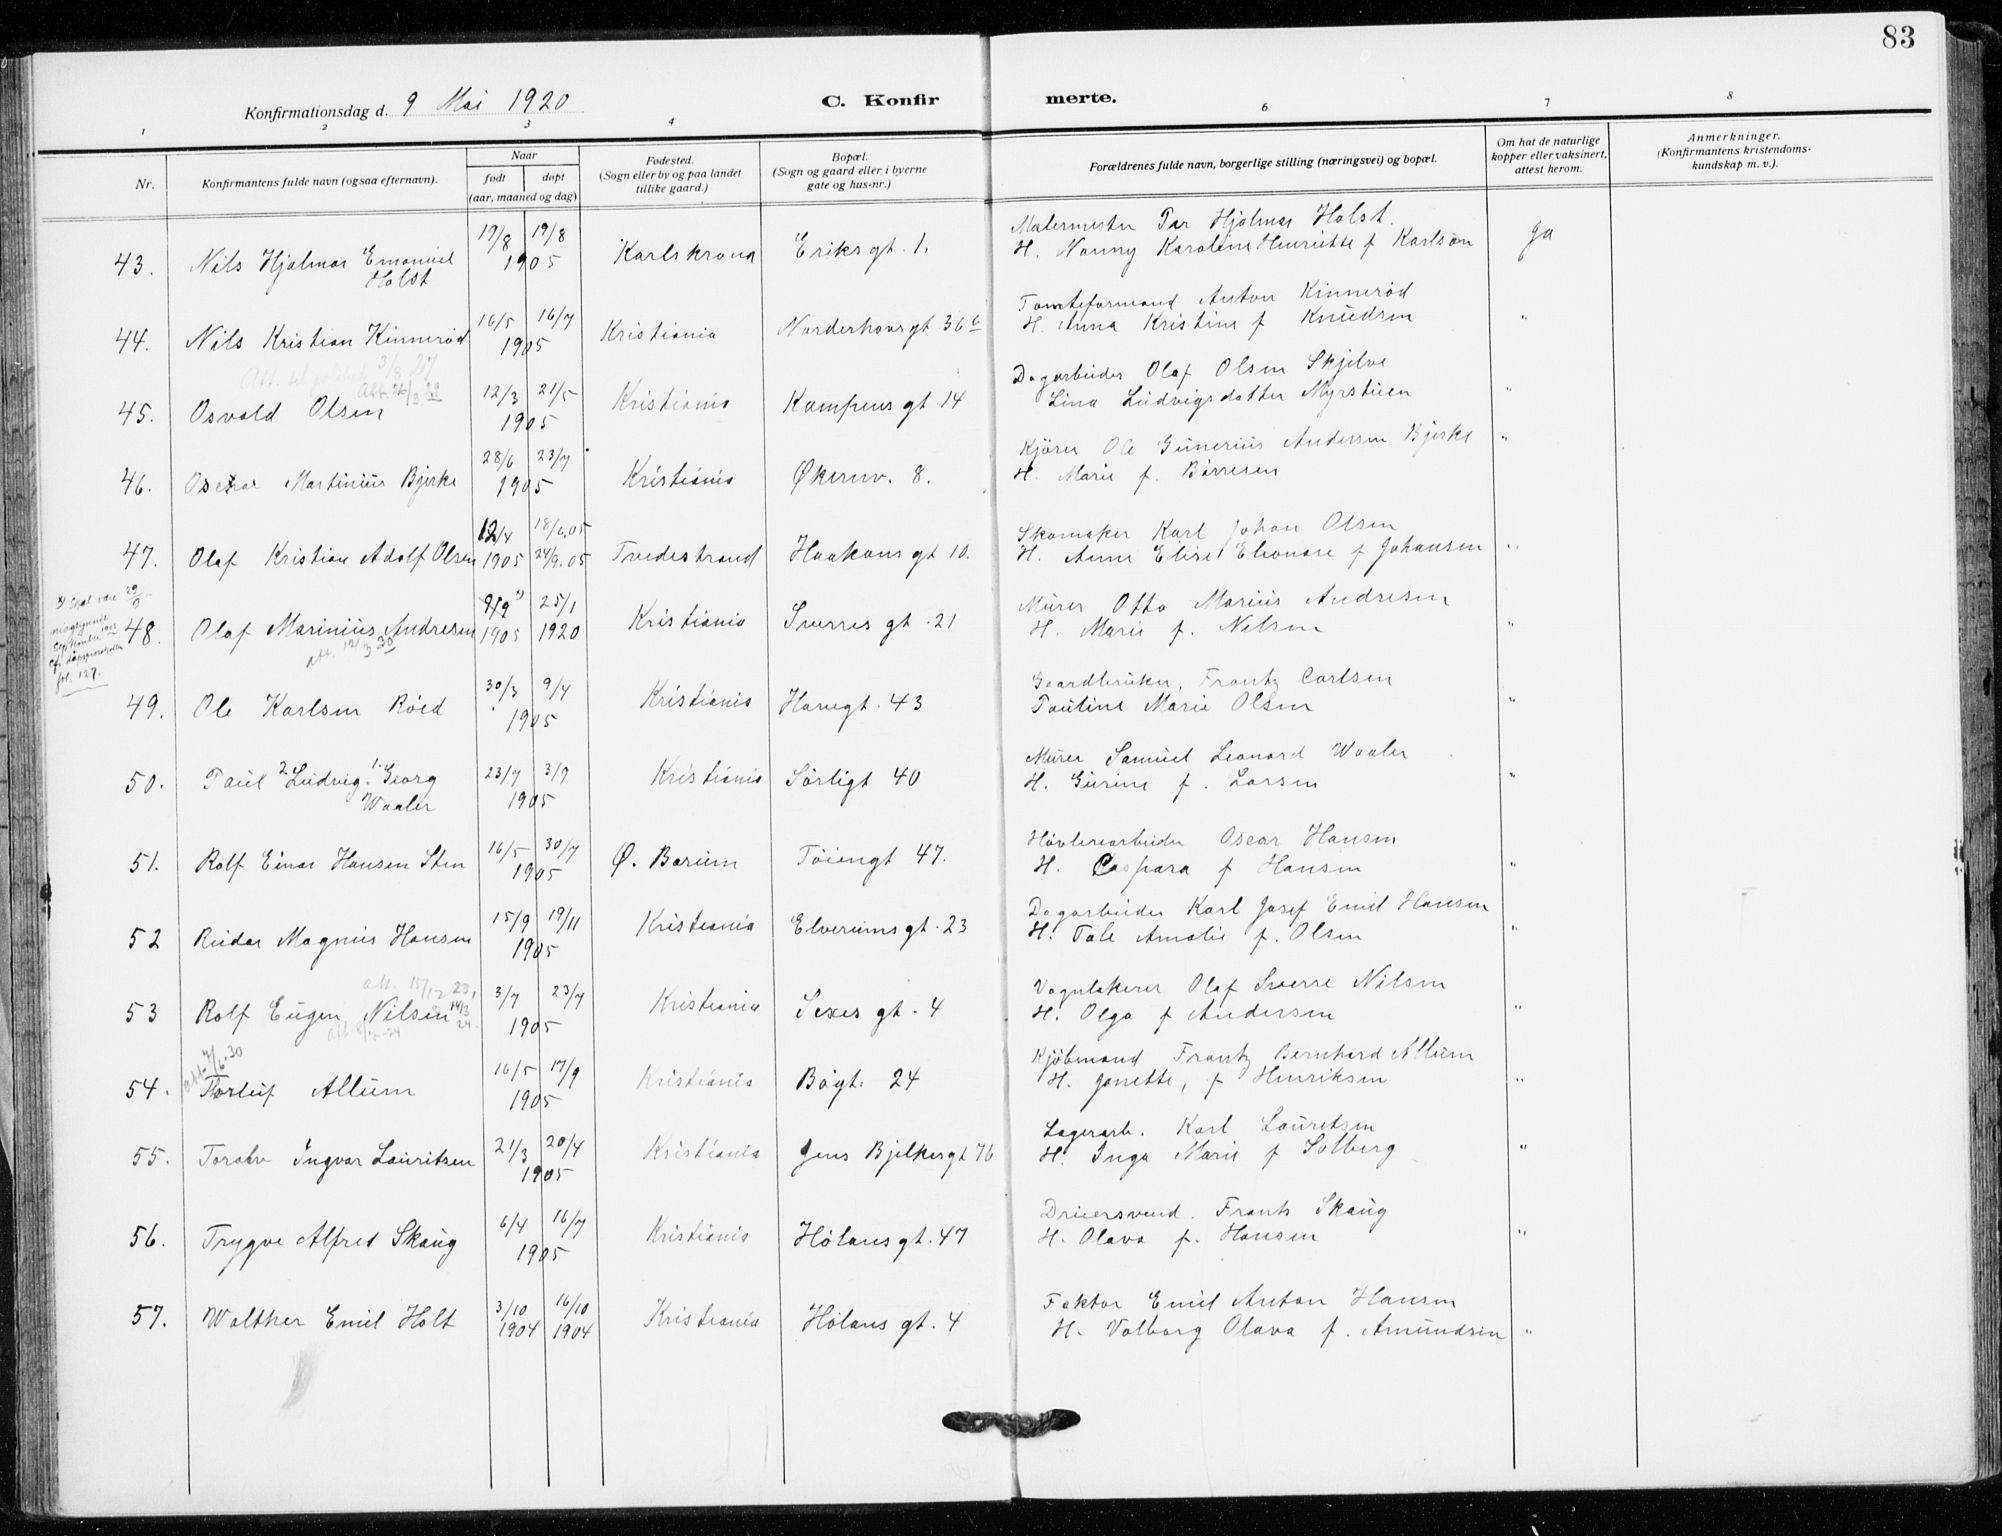 83
Konfirmationsdag d. 9 Mai 1920
C. Konfirmerte.
1 2 3 4 6 7 8
Nr.
Konfirmantens fulde navn (ogsaa efternavn).
Naar
født døpt
(aar, maaned og dag)
Fødested.
(Sogn eller by og paa landet
tillike gaard.)
Bopæl.
(Sogn og gaard eller i byerne
gate og hus-nr.)
Forældrenes fulde navn, borgerlige stilling (næringsvei) og bopæl.
Om hat de naturlige
kopper eller vaksinert,
attest herom.
Anmerkninger.
(Konfirmantens kristendoms-
kundskap m. v.).
43. Nils Hjalmar Emanuel Holst 19/8 19/8 1905 Karlskrona Eriks gt. 1. Malermester Per Hjalmar Holst.
H. Nanny Karoline Henriette f Karlson Ja
44. Nils Kristian Kinnerød 16/5 16/7 1905 Kristiania Norderhovs gt. 36 Tomteformand Anton Kinnerød
H. Anna Kristine f Knudsen "
3/8 27
Att. 26/3 29
45. Osvald Olsen 12/3 21/5 1905 Kristiania Kampens gt. 14 Dagarbeider Olaf Olsen Skjelve
Lina Ludvigsdatter Myrstuen "
46. Oscar Martinius Bjerke 28/6 23/7 1905 Kristiania Økernv. 8. Kjører Ole Gunerius Andersen Bjerke
H. Marie f. Børresen "
47. Olaf Kristian Adolf Olsen 12/4 1905 18/6.05 24/9.05 Tvedestrand Haakons gt 10. Skomaker Karl Johan Olsen
H. Anne Elise Eleonore f Johansen "
48. Olaf Marinius Andresen 1905 25/1 1920 Kristiania Sverres gt. 21 Murer Otto Marius Andresen
H. Marie f. Nilsen "
fol. 127.
49. Ole Karlsen Røed 30/3 9/4 1905 Kristiania Havegt. 43 Gaardbruker, Frantz Carlsen
Pauline Marie Olsen "
50. Paul 2. Ludvig 1. Georg Waaler 23/7 3/9 1905 Kristiania Sørligt 40 Murer Samuel Leonard Waaler
H. Gurine f. Larsen "
51. Rolf Einar Hansen Sten 16/5 30/7 1905 Ø. Bærum Tøiengt 47. Høvleriarbeider Oscar Hansen
H. Caspara f Hansen "
52 Reidar Magnus Hansen 15/9 19/11 1905 Kristiania Elverums gt. 23 Dagarbeider Karl Josef Emil Hansen
H. Tale Amalie f. Olsen "
att. 15/12 23,
53 Rolf Eugen Nilsen 3/7 23/7 1905 Kristiania Sexes gt. 4 Vognlakerer Olaf Sverre Nilsen
H. Olga f Andersen "
54. Torleif Allum 16/5 17/9 1905 Kristiania Bøgt. 24 Kjøbmand Frantz Bernhard Allum
H. Janette, f Henriksen "
55. Toralv Ingvar Lauritsen 21/3 20/4 1905 Kristiania Jens Bjelkes gt 76 Lagerarb. Karl Lauritsen
H. Inga Marie f Solberg "
56. Trygve Alfred Skaug 6/4 16/7 1905 Kristiania Hølans gt. 47 Dreiersvend. Frants Skaug
H. Olava f. Hansen "
57. Walther Emil Holt 3/10 1904 16/10 1904 Kristiania Hølans gt. 4 Faktor Emil Anton Hansen
H. Valborg Olava f. Amundsen "